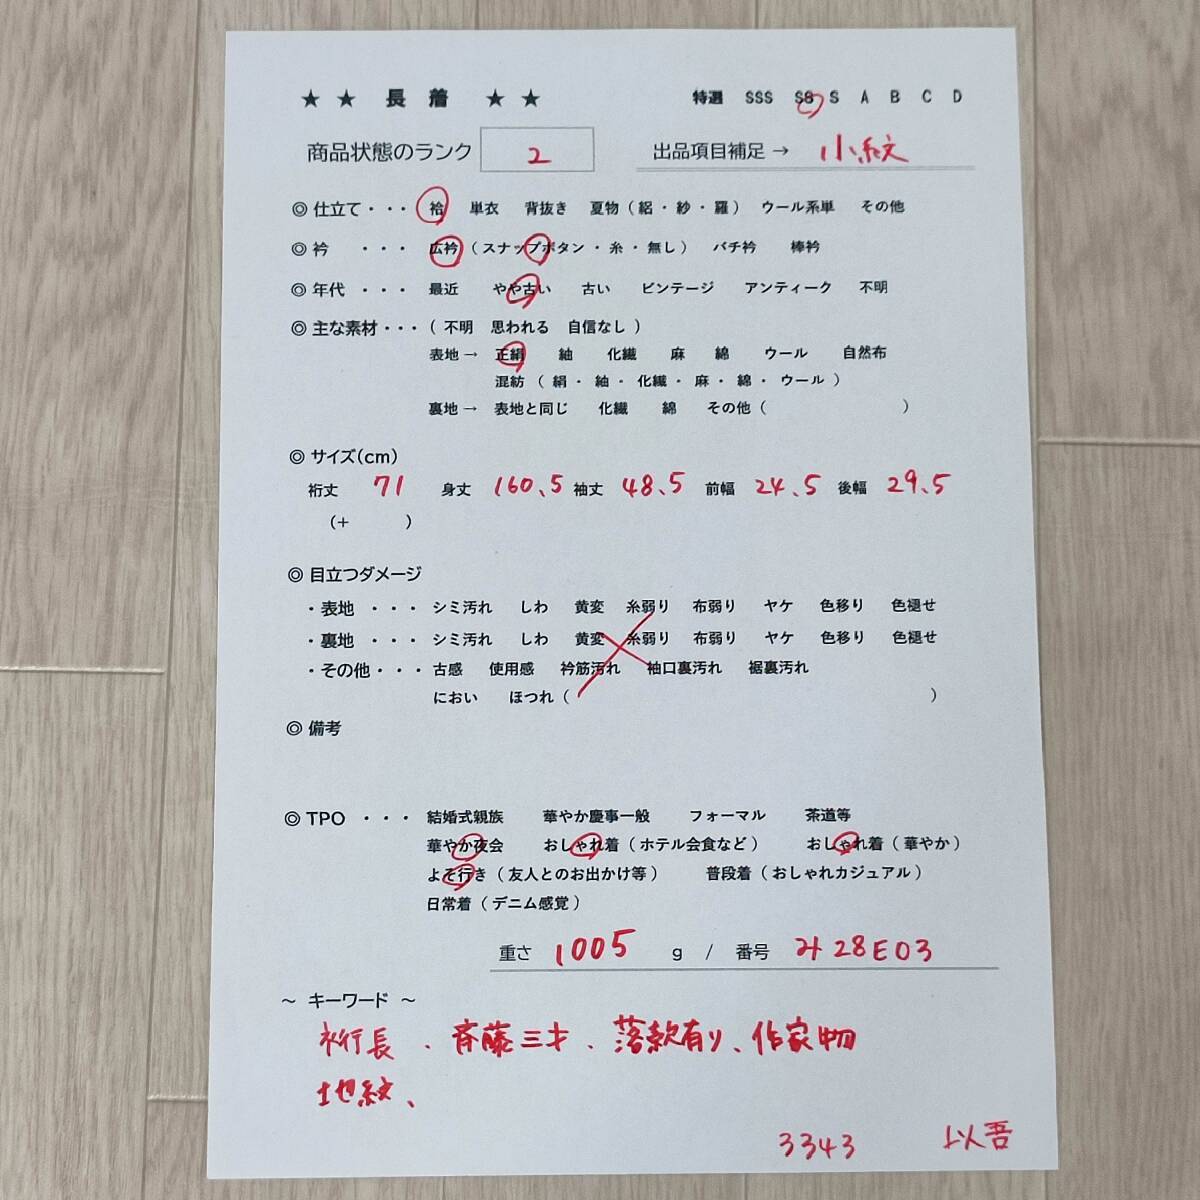 ★ ★ 長 着 ★ ★ 特選 SSS SS S A B C D
商品状態のランク 2 出品項目補足 → 小紋
◎ 仕立て・・・ 袷 単衣 背抜き 夏物 ( 絽・紗・羅 ) ウール系単 その他
◎ 衿 ・・・ 広衿 ( スナップボタン・糸・無し ) バチ衿 棒衿
◎ 年代 ・・・ 最近 やや古い 古い ビンテージ アンティーク 不明
◎ 主な素材・・・ ( 不明 思われる 自信なし )
表地 → 正絹 紬 化繊 麻 綿 ウール 自然布
混紡 ( 絹・紬・化繊・麻・綿・ウール )
裏地 → 表地と同じ 化繊 綿 その他 ( )
◎ サイズ(cm)
裄丈 71 身丈 160.5 袖丈 48.5 前幅 24.5 後幅 29.5
(+ )
◎ 目立つダメージ
・表地 ・・・ シミ汚れ しわ 黄変 糸弱り 布弱り ヤケ 色移り 色褪せ
・裏地 ・・・ シミ汚れ しわ 黄変 糸弱り 布弱り ヤケ 色移り 色褪せ
・その他・・・ 古感 使用感 衿筋汚れ 袖口裏汚れ 裾裏汚れ
におい ほつれ ( )
◎ 備考
◎ TPO ・・・ 結婚式親族 華やか慶事一般 フォーマル 茶道等
華やか夜会 おしゃれ着 ( ホテル会食など ) おしゃれ着 ( 華やか )
よそ行き ( 友人とのお出かけ等 ) 普段着 ( おしゃれカジュアル )
日常着 ( デニム感覚 )
重さ 1005 g / 番号 み28E03
～ キーワード ～
裄長、斉藤三才、落款有り、作家物
地紋、
3343